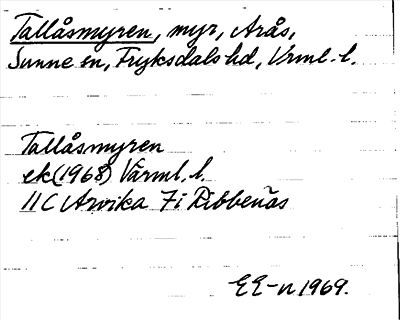 Tallåsmyren, myr, Arås,
Sunne sn, Fryksdals hd, Vrml. l.
Tallåsmyren
ek (1968) Värml. l.
11 C Arvika 7 i Ribbenäs
EE-n 1969.